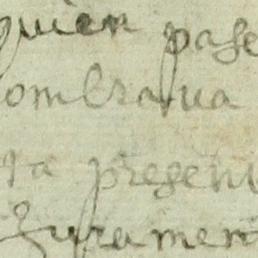 quien pase
ombraua
ta presen
Juramen